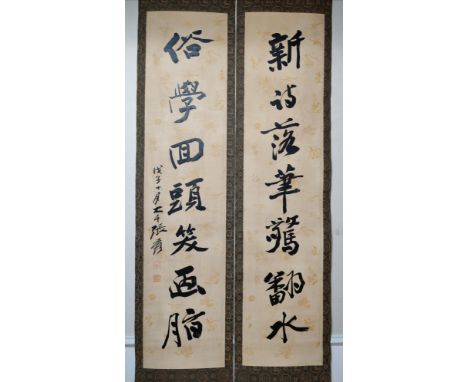 新詩落筆驚翻水
俗學回頭笑画脂
戊子十月大千張爰